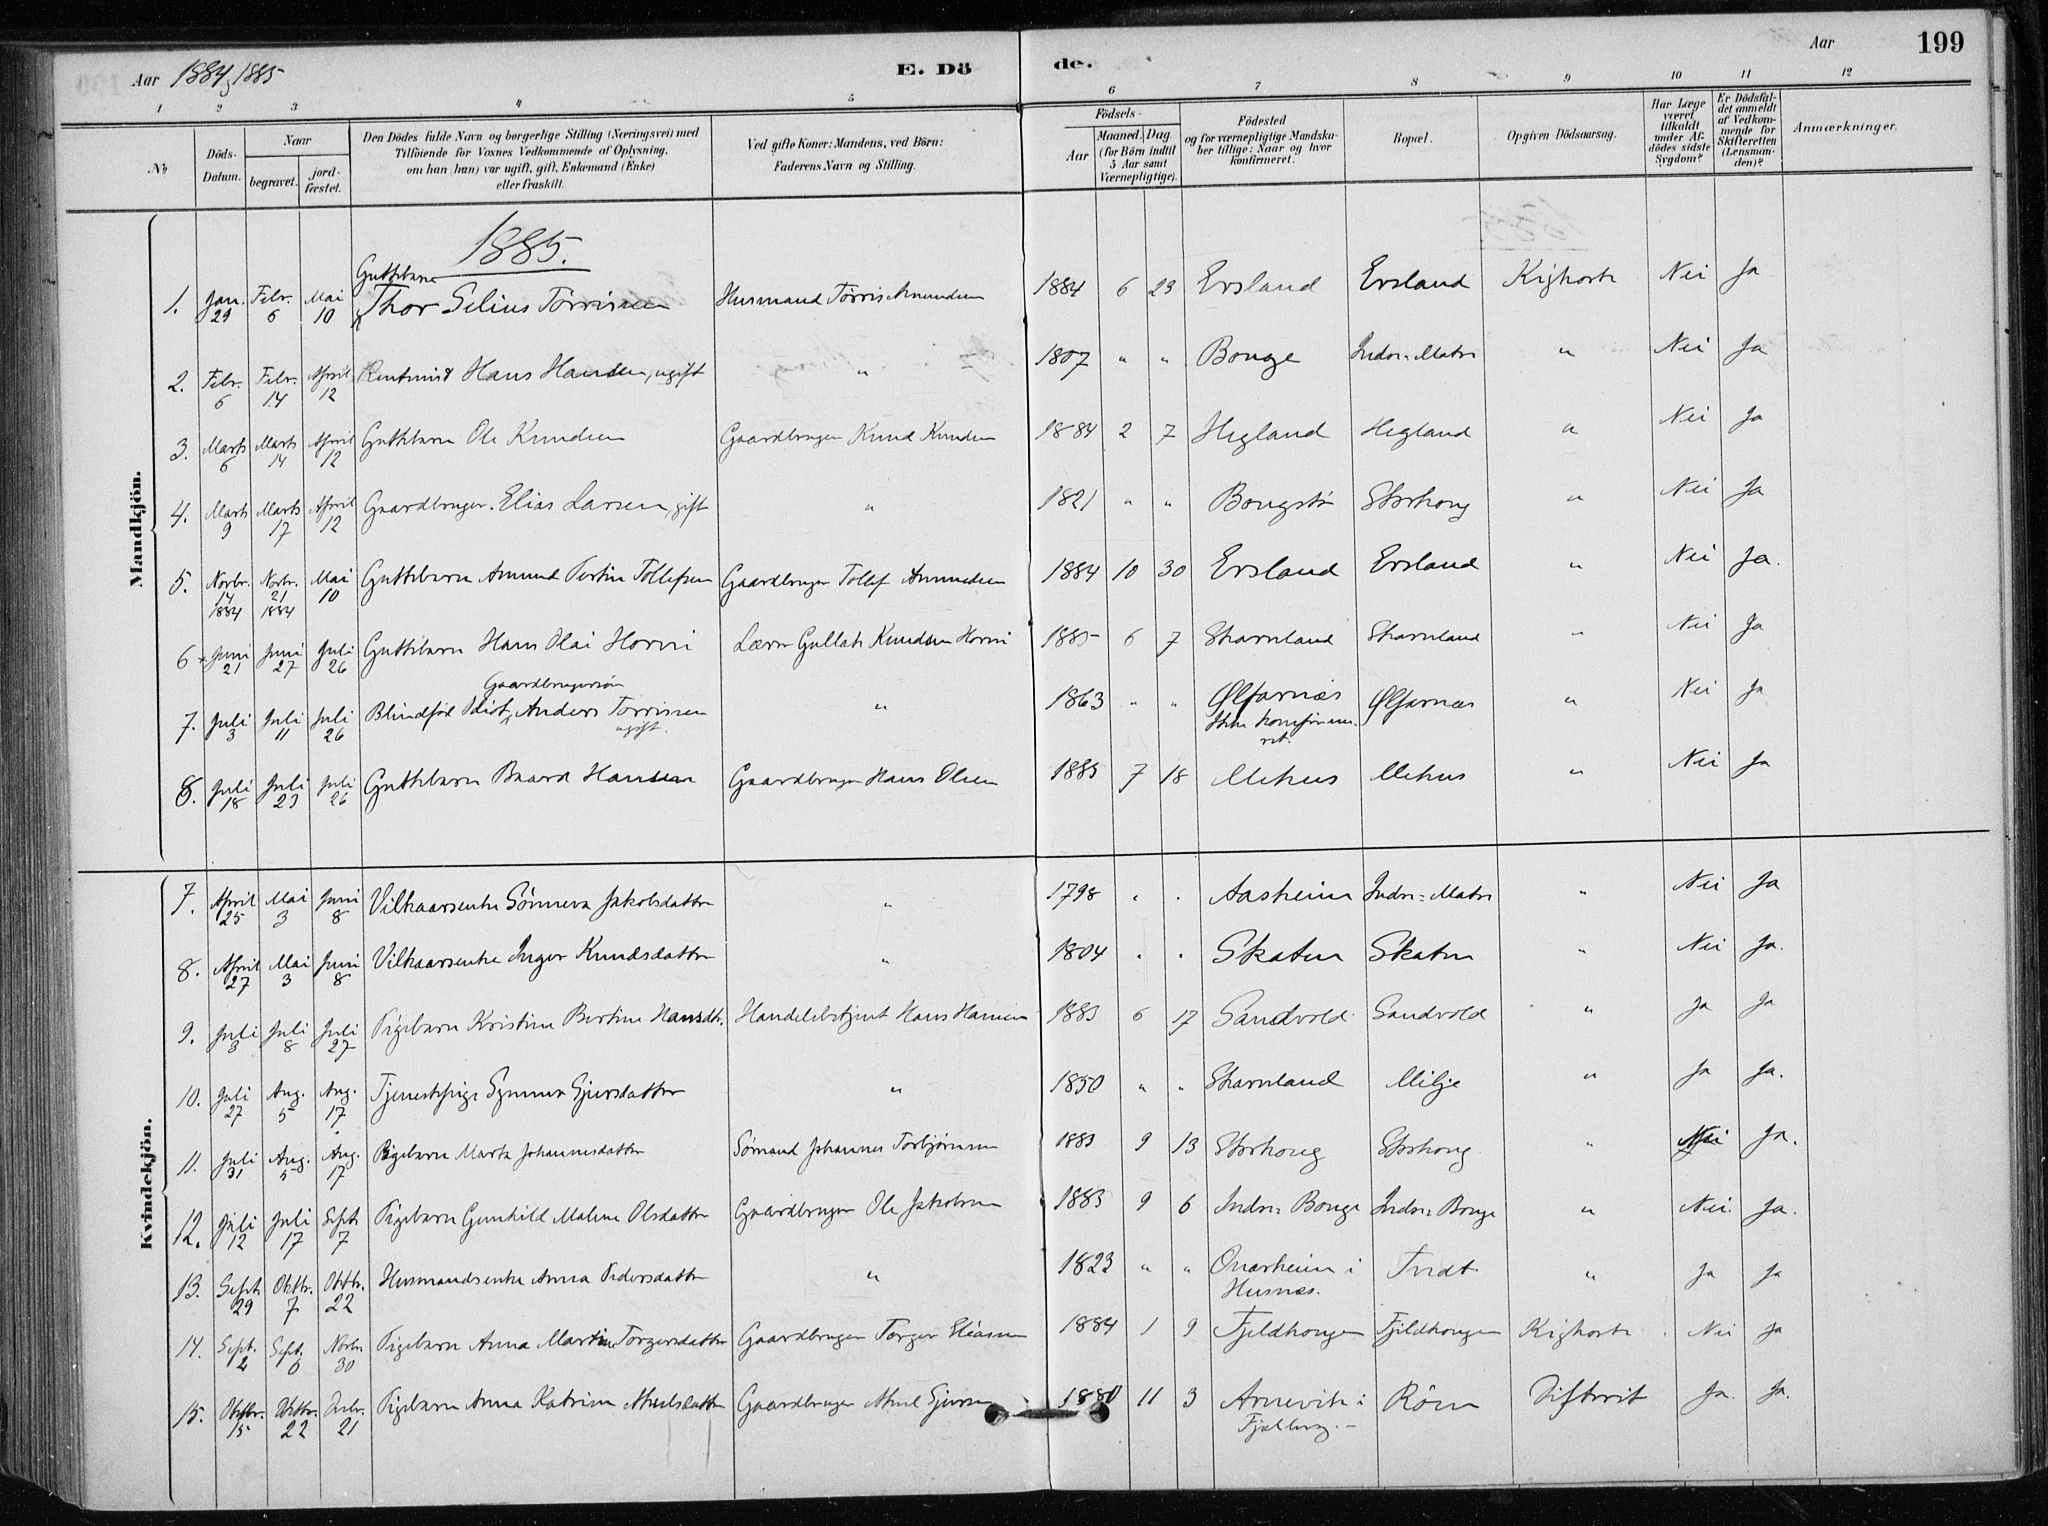 Aar 1884, 1885
E. Döde.
Aar
199
1 2 3 4 5 6 7 8 9 10 11 12
№
Döds-Datum.
Naar
begravet.
jord-fæstet.
Den Dödes fulde Navn og borgerlige Stilling (Næringsvei) med
Tilföiende for Voxnes Vedkommende af Oplysning,
om han (hun) var ugift, gift, Enkemand (Enke)
eller fraskilt.
Ved gifte Koner: Mandens, ved Börn:
Faderens Navn og Stilling.
Födsels-
Aar
Maaned. Dag.
(for Börn indtil
5 Aar samt
Værnepligtige).
Födested
og for værnepligtige Mandska-
ber tillige: Naar og hvor
konfirmeret.
Bopæl.
Opgiven Dödsaarsag.
Har Læge
været
tilkaldt
under Af-
dödes sidste
Sygdom?
Er Dödsfal-
det anmeldt
af Vedkom-
mende for
Skifteretten
(Lensman-
den)?
Anmærkninger.
Mandkjön.
1885.
1. Jan. 29 Febr. 6 Mai 10 Guttebarn Thor Selius Törrissen Husmand Törris Amundsen 1884 6 23 Ersland Ersland Kighoste Nei Ja
2. Febr. 6 Febr. 14 April 12 Hans Hansen, ugift " 1807 " " Bouge Indre=Matre " Nei Ja
3. Marts 6 Marts 14 April 12 Guttebarn Ole Knudsen Gaardbruger Knud Knudsen 1884 2 7 Hegland Hegland " Nei Ja
4. Marts 9 Marts 17 April 12 Gaardbruger Elias Larsen, gift " 1821 " " Bougstø Storhoug " Nei Ja
5. Novbr. 14 1884 Novbr. 21 1884 Mai 10 Guttebarn Amund Tollefsen Gaardbruger Tollef Amundsen 1884 10 30 Ersland Ersland " Nei Ja.
6 Juni 21 Juni 27 Juli 26 Guttebarn Hans Olai Horvei Lærer Gullak Knudsen Horvei 1885 6 7 Skarvland Skarvland " Nei Ja
7. Juli 3 Juli 11 Juli 26 Blindfød Idiot, Gaardbrugersøn Anders Törrissen ugift. " 1863 " " Ølfarnæs Ikke konfirmeret. Ølfarnæs " Nei Ja
8. Juli 18 Juli 23 Juli 26 Guttebarn Baard Hansen Gaardbruger Hans Olsen 1885 7 18 Mehus Mehus " Nei Ja
Kvindekjön.
7. April 25 Mai 3 Juni 8 Vilkaarsenke Sönneva Jakobsdatter " 1798 " " Aasheim Indre=Matre " Nei Ja
8. April 27 Mai 3 Juni 8 Vilkaarsenke Inger Knudsdatter " 1804 " " Skaten Skaten " Nei Ja.
9. Juli 3 Juli 8 Juli 27 Pigebarn Kristine Bertine Hansdtr. Handelsbetjent Hans Hansen 1883 6 17 Sandvold Sandvold " Ja Ja
10. Juli 27 Aug. 5 Aug. 17 Tjenestepige Synneva Gjersdatter " 1850 " " Skarvland Milje " Ja Ja.
11. Juli 31 Aug. 5 Aug. 17 Pigebarn Marta Johannesdatter Sömand Johannes Torbjörnsen 1883 9 13 Storhoug Storhoug " Nei Ja.
12. Juli 12 Juli 17 Sept. 7 Pigebarn Gunhild Malene Olsdatter Gaardbruger Ole Jakobsen 1883 9 6 Indre=Bouge Indre=Bouge " Nei. Ja.
13. Sept. 29 Oktbr. 7 Oktbr. 22 Husmandsenke Anna Pedersdatter " 1823 " " Qvarheim i Husnæs. Tvedt " Ja Ja
14. Sept. 2 Sept. 6 Novbr. 30 Pigebarn Anna Martine Torgersdatter Gaardbruger Torger Eliassen 1884 1 9 Fjeldhougen Fjeldhougen Kighoste Nei Ja
15. Oktbr. 15 Oktbr. 22 Decbr. 21 Pigebarn Anna Katrine Gaardbruger Gjersen 1880 11 3 Arnevik i Fjelberg. Röen Difterit Ja. Ja.